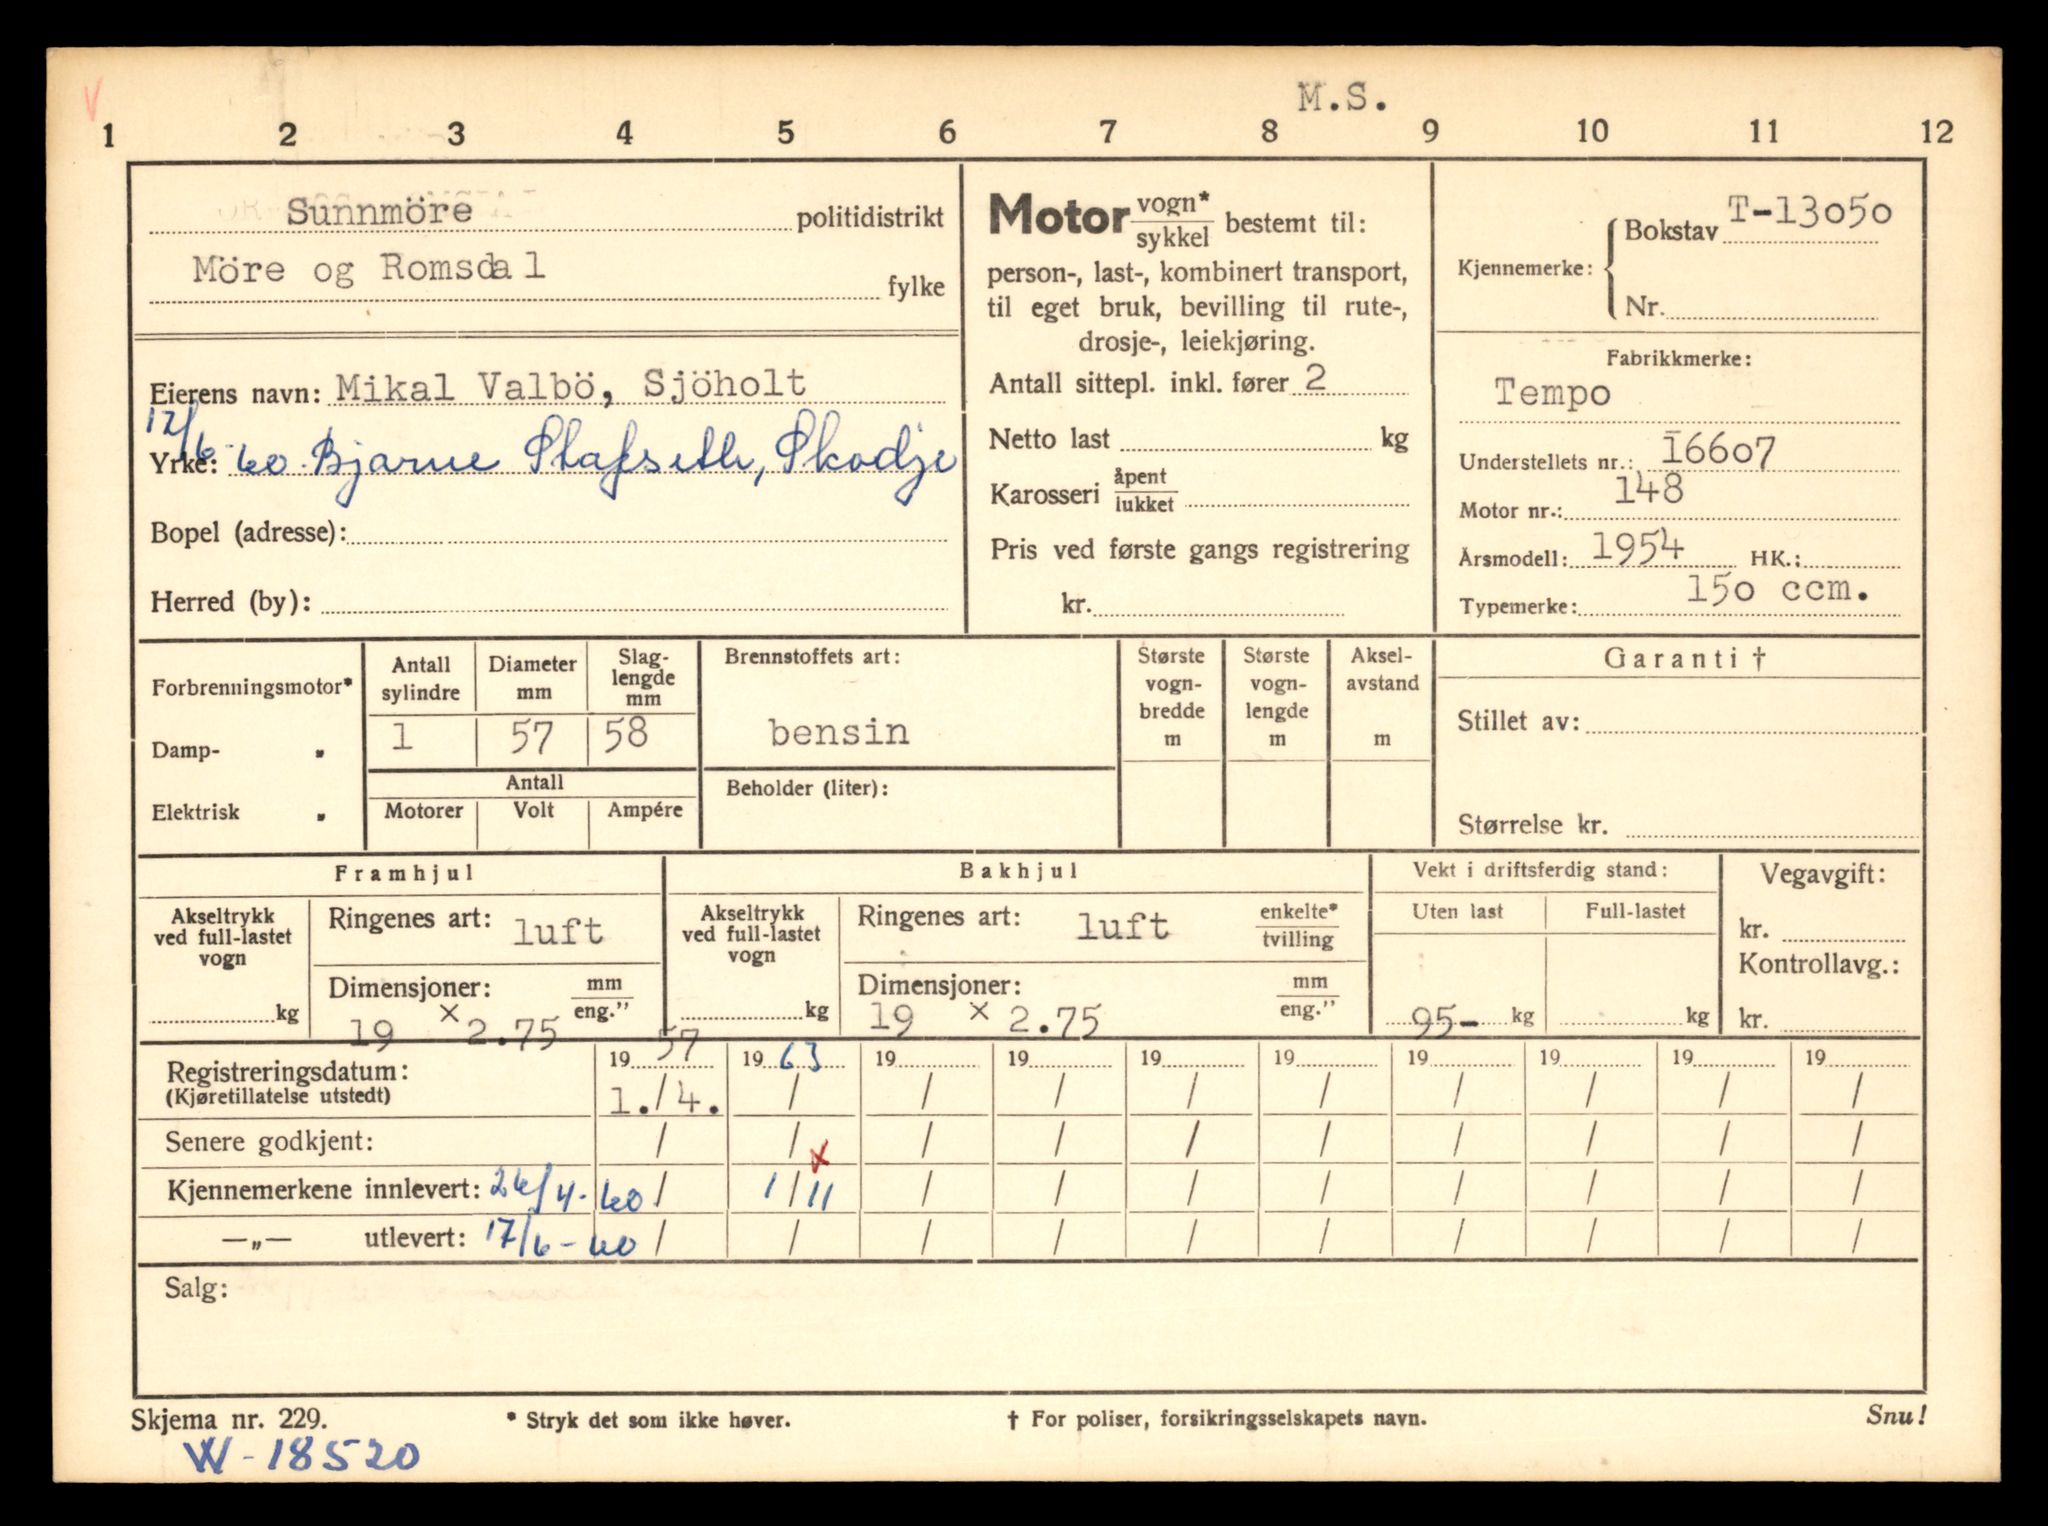 M.S.
1 2 3 4 5 6 7 8 9 10 11 12
Sunnmöre politidistrikt
Möre og Romsdal fylke
Eierens navn: Mikal Valbö, Sjöholt
Yrke: 17/6-60. Bjarne Stafseth, Skodje
Bopel (adresse):
Herred (by):
Motor vogn* / sykkel bestemt til:
person-, last-, kombinert transport,
til eget bruk, bevilling til rute-,
drosje-, leiekjøring.
Antall sittepl. inkl. fører 2
Netto last kg
Karosseri åpent / lukket
Pris ved første gangs registrering
kr.
Kjennemerke: { Bokstav T-13050
Nr.
Fabrikkmerke:
Tempo
Understellets nr.: 16607
Motor nr.: 148
Årsmodell: 1954 HK.:
Typemerke: 150 ccm.
Forbrenningsmotor*
Damp- "
Elektrisk "
Antall sylindre
Diameter mm
Slag-lengde mm
1 57 58
Antall
Motorer Volt Ampére
Brennstoffets art:
bensin
Beholder (liter):
Største vogn-bredde m
Største vogn-lengde m
Aksel-avstand m
Garanti †
Stillet av:
Størrelse kr.
Framhjul
Akseltrykk ved full-lastet vogn
kg
Ringenes art: luft
Dimensjoner: mm / eng."
19 x 2.75
Bakhjul
Akseltrykk ved full-lastet vogn
kg
Ringenes art: luft enkelte* / tvilling
Dimensjoner: mm / eng."
19 x 2.75
Vekt i driftsferdig stand:
Uten last Full-lastet
95- kg kg
Vegavgift:
kr.
Kontrollavg.:
kr.
Registreringsdatum: 19 57 19 63 19 19 19 19 19 19 19 19
(Kjøretillatelse utstedt) 1./4. / / / / / / / / /
Senere godkjent: / / / / / / / / / /
Kjennemerkene innlevert: 26/4-60 / 1/11 x / / / / / / / /
—„— utlevert: 17/6-60 / / / / / / / / / /
Salg:
Skjema nr. 229. * Stryk det som ikke høver. † For poliser, forsikringsselskapets navn. Snu!
W-18520